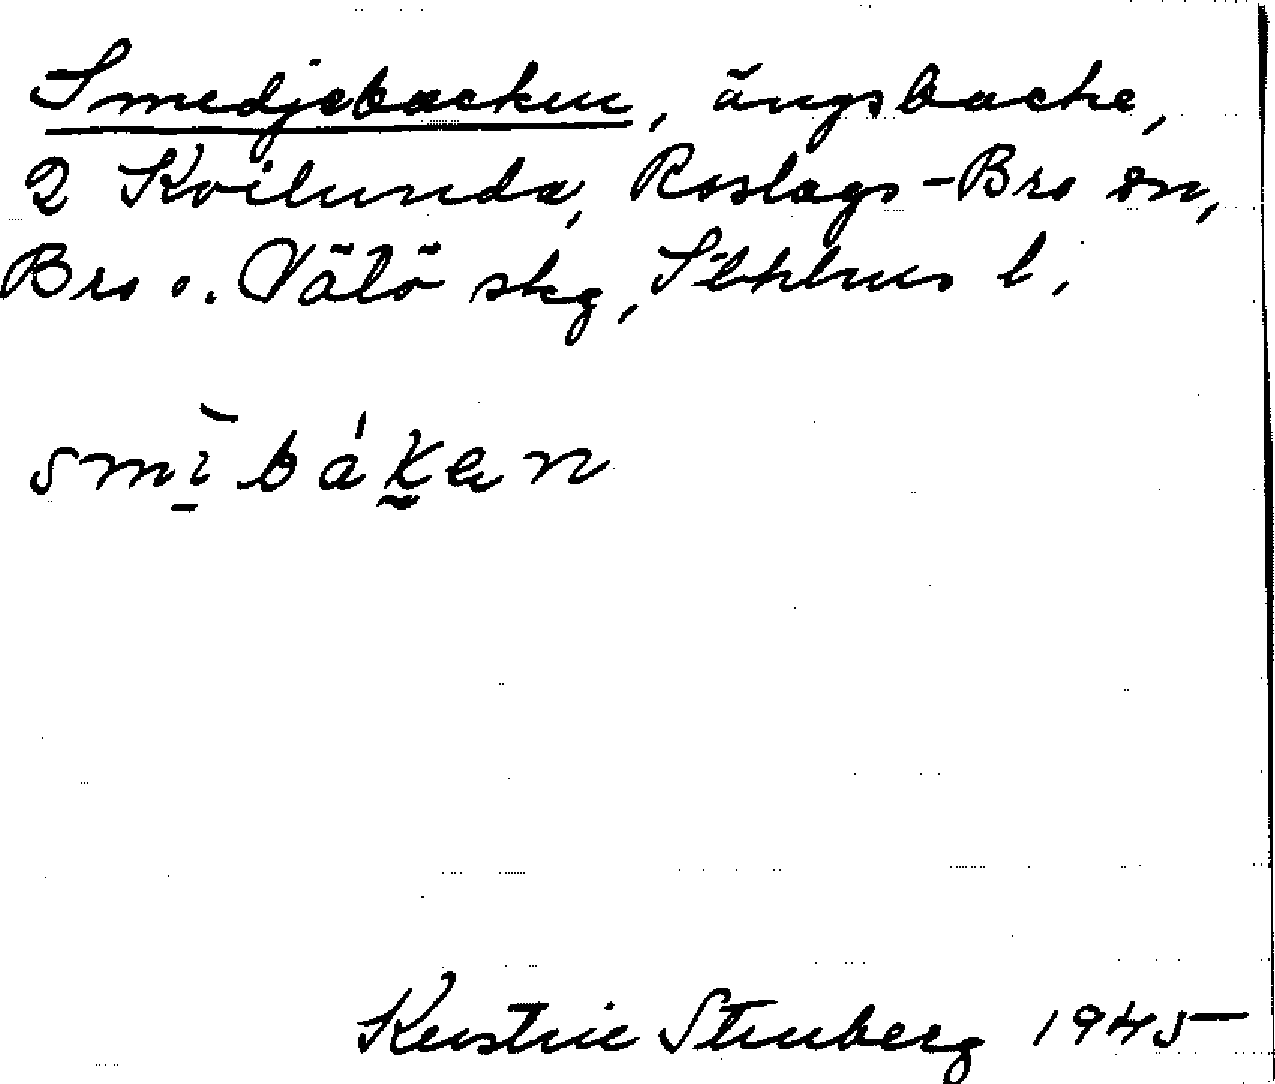 Smedjebacken, ängsbacke,
2 Kvilunda, Roslags-Bro sn,
Bro o. Vätö skg, Sthlms l.
smi bákan
Kerstin Stenberg 1945